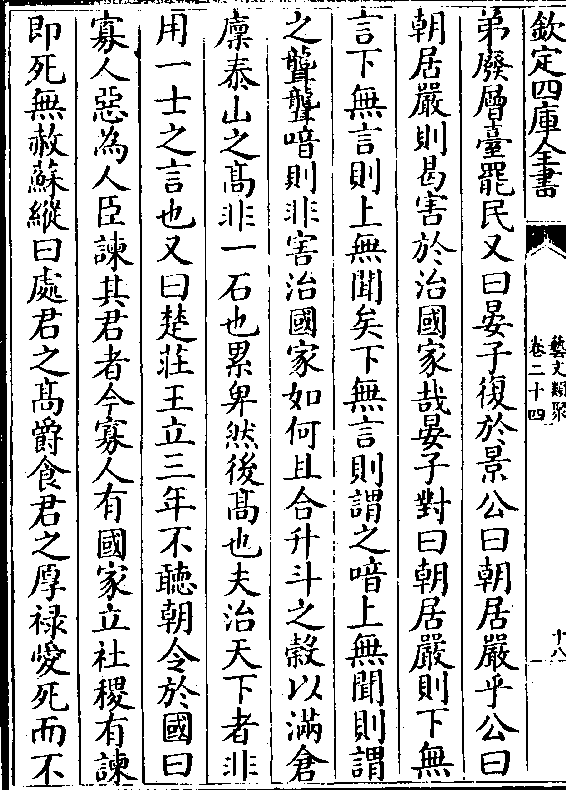 欽定四庫全書
藝文類聚
卷二十四
十八
弟廢層臺罷民又曰晏子復於景公曰朝居嚴乎公曰
朝居嚴則曷害於治國家哉晏子對曰朝居嚴則下無
言下無言則上無聞矣下無言則謂之喑上無聞則謂
之聾聾喑則非害治國家如何且合升斗之榖以滿倉
廩泰山之髙非一石也累卑然後髙也夫治天下者非
用一士之言也又曰楚莊王立三年不聽朝令於國曰
寡人惡為人臣諫其君者今寡人有國家立社稷有諫
即死無赦蘇縱曰處君之髙爵食君之厚禄愛死而不